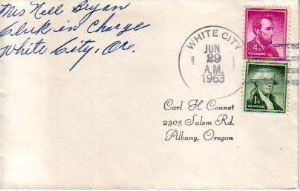 Mrs Nell Bryan
Clerk in Charge
White City, Ore.
WHITE CITY
JUN
29
A.M.
1963
4¢
1¢
Carl H. Connet
2305 Salem Rd.
Albany, Oregon